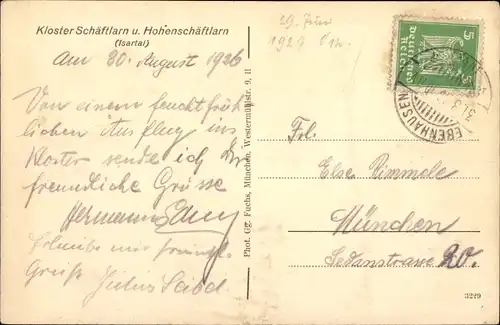 Kloster Schäftlarn u. Hohenschäftlarn
(Isartal)
am 30. August 1926
Von einem feucht fröh
lichen Ausflug ins
Kloster sende ich Dir
freundliche Grüsse
Hermann
Erlaube mir freundl.
Gruß Julius Seidl
Phot. Gg. Fuchs, München, Westermühlstr. 9, II
29. Juni
192
5
5
Deutsches
Reich
EBENHAUSEN
Frl.
Else Dimmele
München
Sedanstrasse 20.
3229